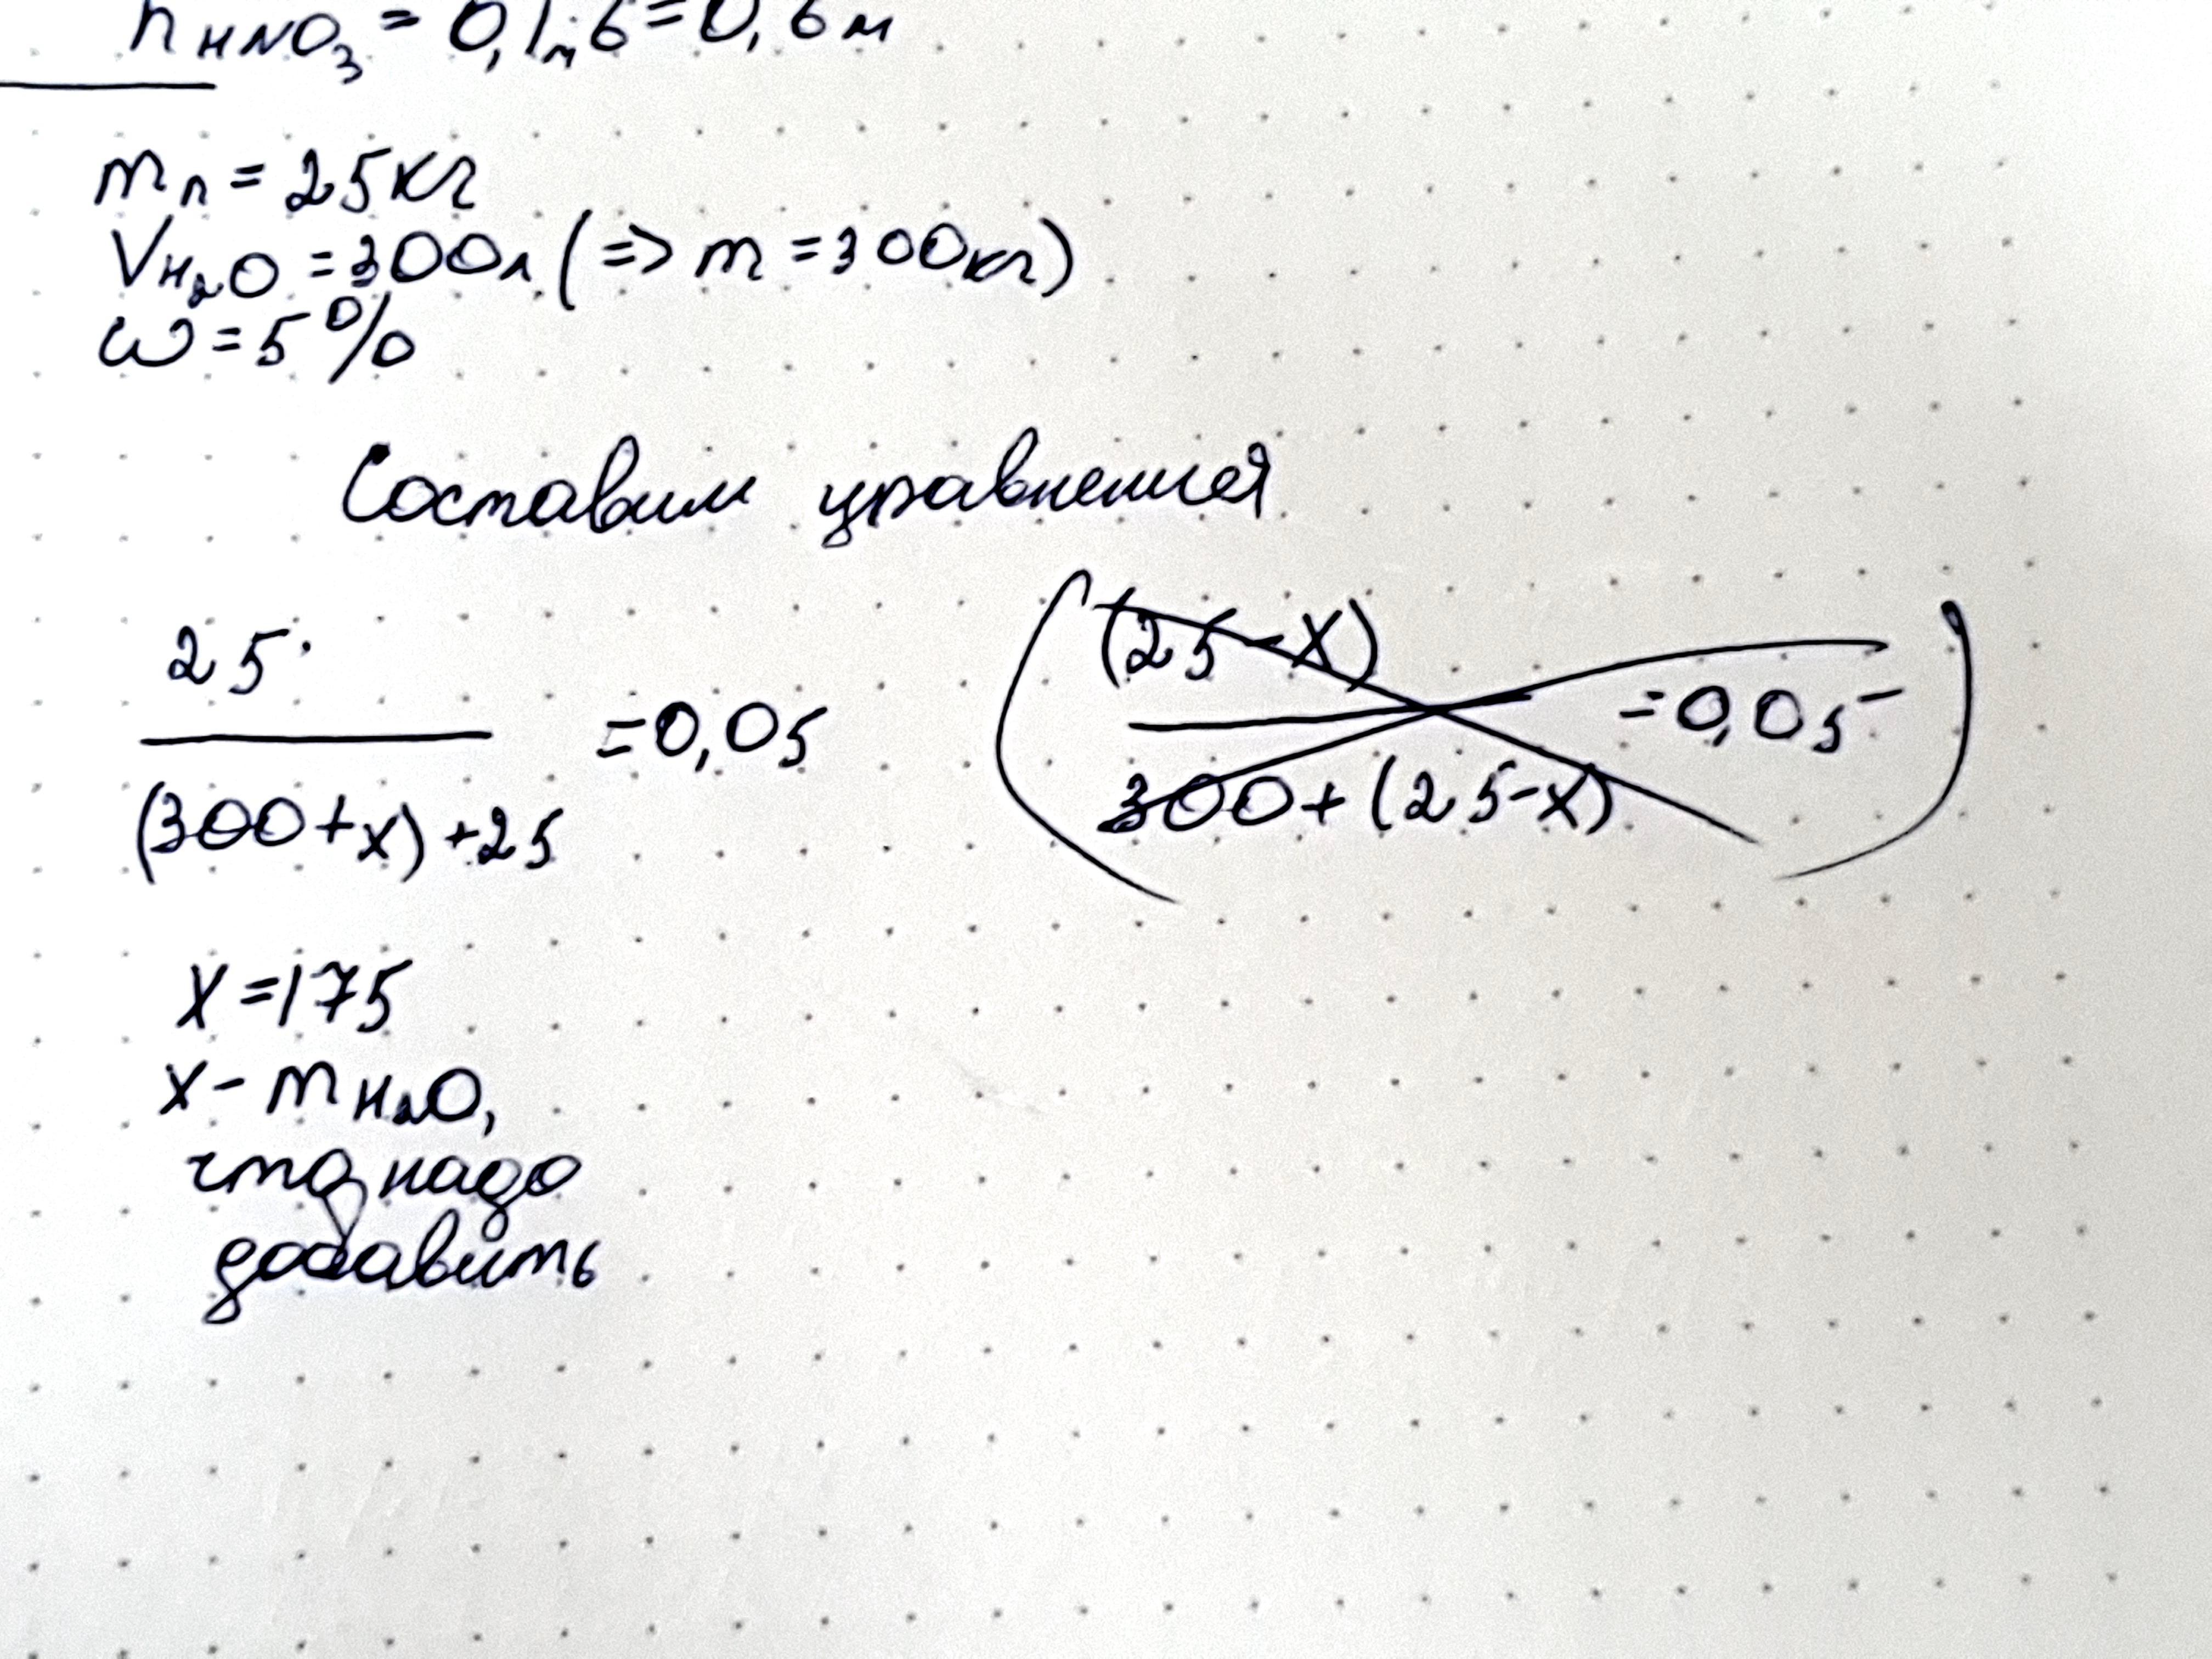 n HNO₃ = 0,1 · 6 = 0,6 м
mп = 25 кг
V H₂O = 300л (=> m = 300кг)
ω = 5%
Составим уравнения
25
(300+x)+25
=0,05
(25-x)
300+(25-x)
=0,05
x=175
x - m H₂O,
что надо
добавить